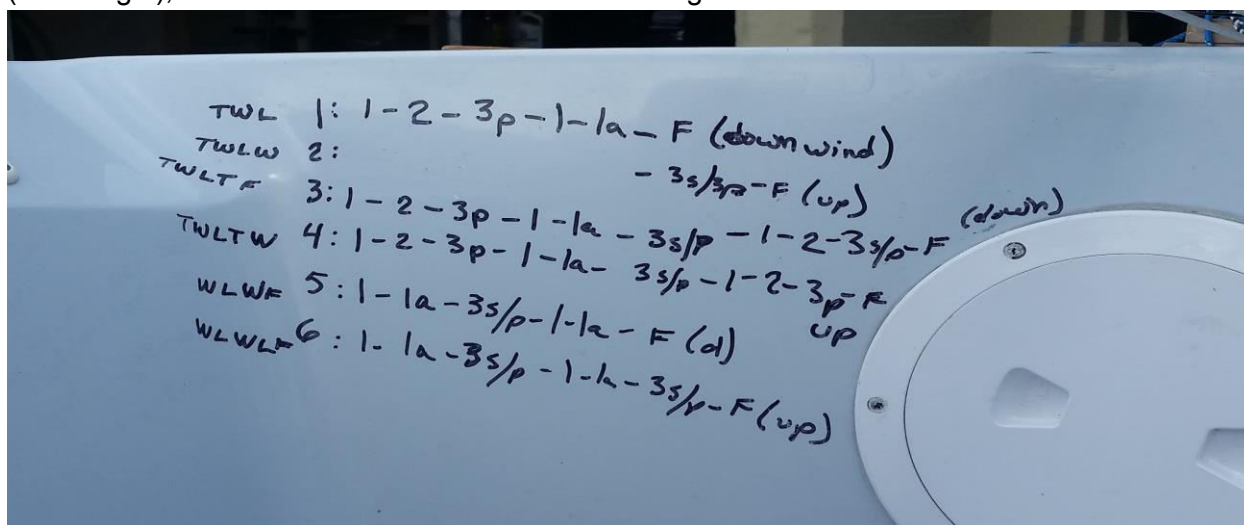 TWL 1: 1-2-3p-1-1a-F (downwind)
TWLW 2: -3s/3p-F (up)
TWLTF 3: 1-2-3p-1-1a-3s/p-1-2-3s/p-F (down)
TWLTW 4: 1-2-3p-1-1a-3s/p-1-2-3p-F
up
WLWF 5: 1-1a-3s/p-1-1a-F (d)
WLWLF 6: 1-1a-3s/p-1-1a-3s/p-F (up)